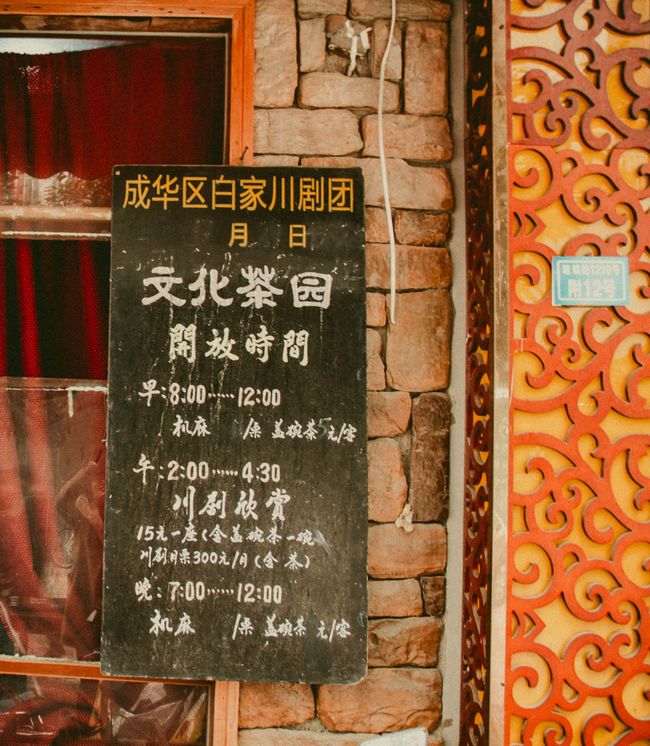 成华区白家川剧团
月 日
文化茶园
開放時間
早:8:00……12:00
机麻 /桌 盖碗茶5元/客
午:2:00……4:30
川剧欣赏
15元一座(含盖碗茶一碗
川剧月票300元/月(含茶)
晚:7:00……12:00
机麻 /桌 盖碗茶 元/客
附12号